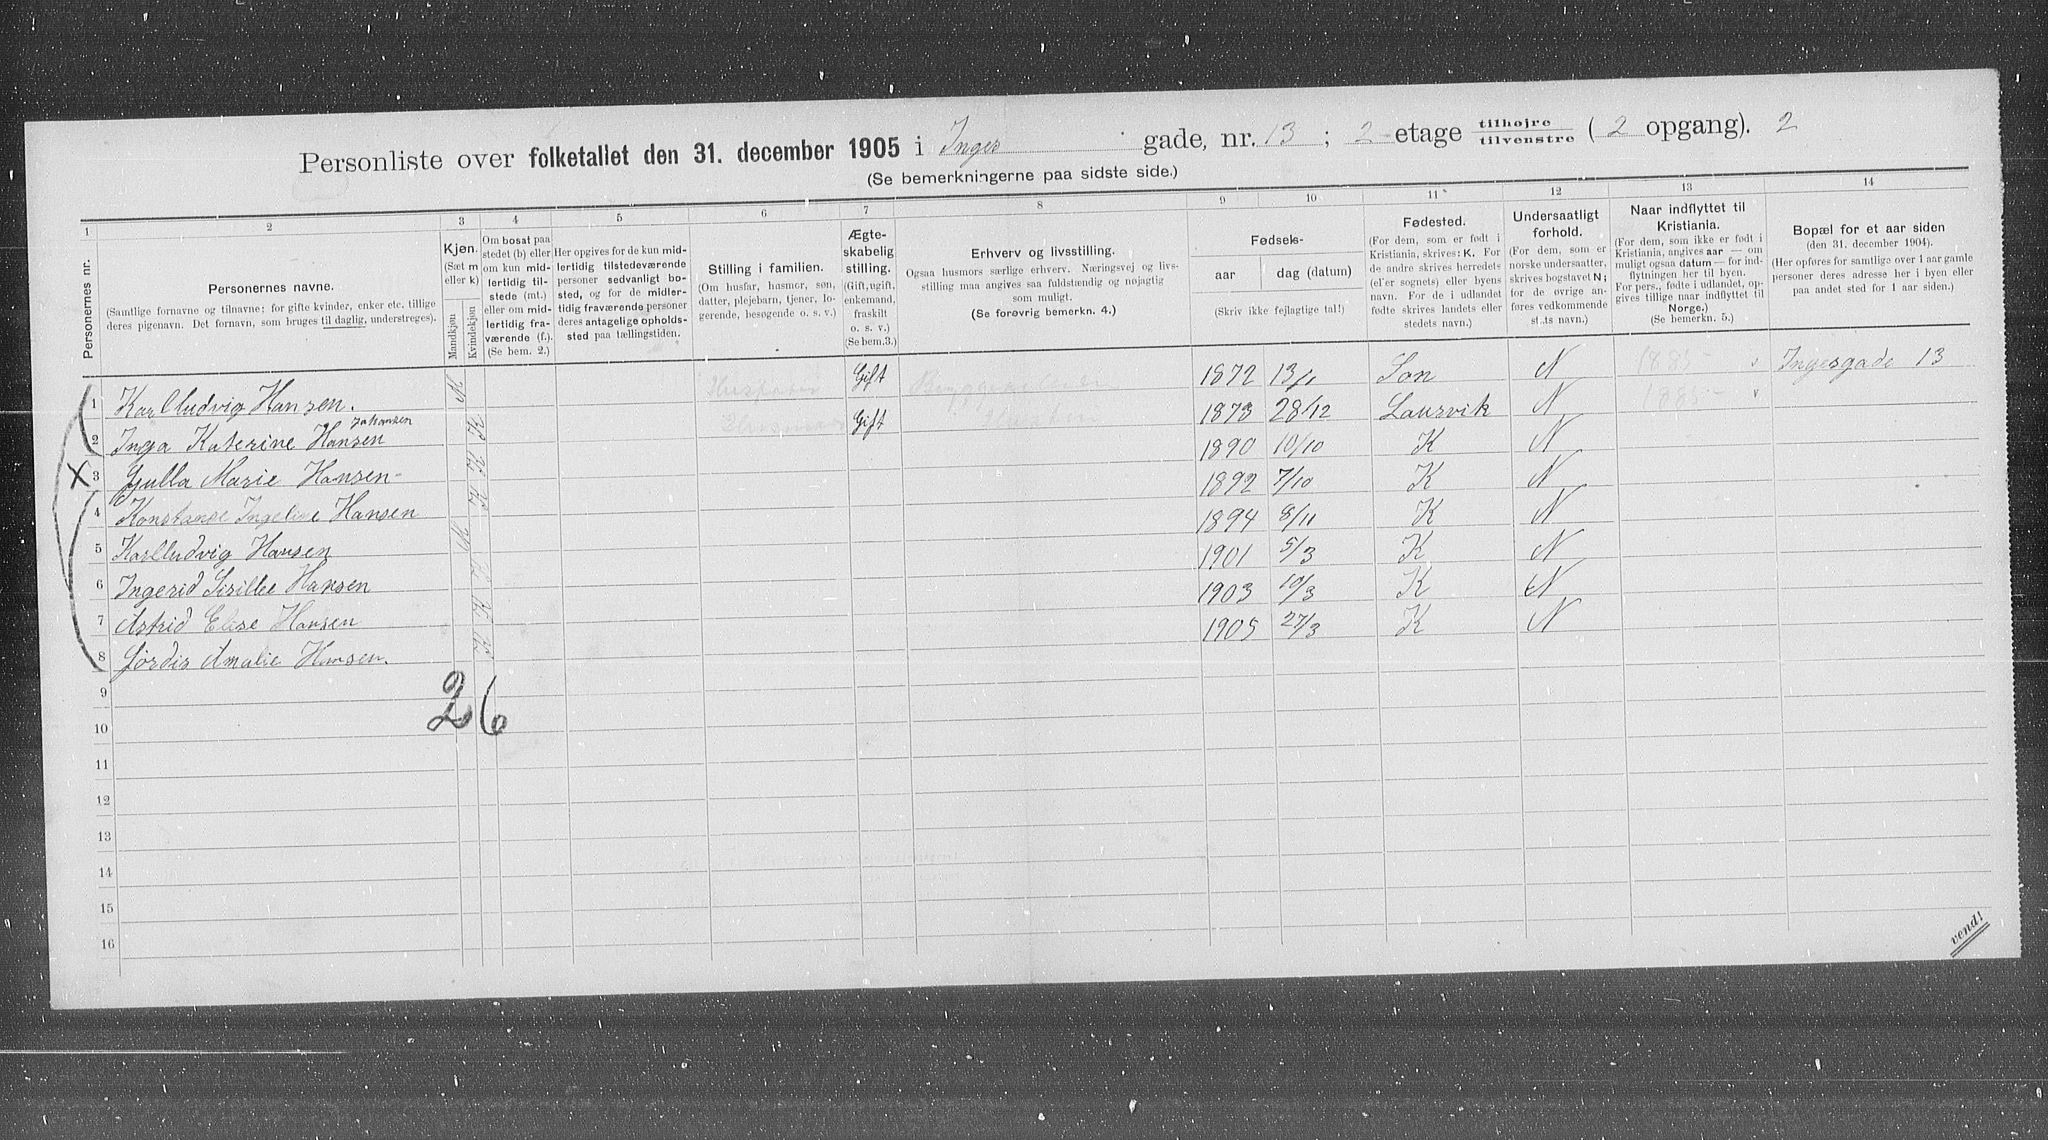 Personliste over folketallet den 31. december 1905 i Inges gade, nr. 13 ; 2 etage tilhøjre / tilvenstre ( 2 opgang). 2
(Se bemerkningerne paa sidste side.)
1 2 3 4 5 6 7 8 9 10 11 12 13 14
Personernes nr.
Personernes navne.
(Samtlige fornavne og tilnavne; for gifte kvinder, enker etc. tillige
deres pigenavn. Det fornavn, som bruges til daglig, understreges).
Kjøn.
(Sæt m
eller k)
Mandkjøn
Kvindekjøn
Om bosat paa
stedet (b) eller
om kun mid-
lertidig til-
stede (mt.)
eller om mid-
lertidig fra-
værende (f.).
(Se bem. 2.)
Her opgives for de kun mid-
lertidig tilstedeværende
personer sedvanligt bo-
sted, og for de midler-
tidig fraværende personer
deres antagelige opholds-
sted paa tællingstiden.
Stilling i familien.
(Om husfar, husmor, søn,
datter, plejebarn, tjener, lo-
gerende, besøgende o. s. v.)
Ægte-
skabelig
stilling.
(Gift, ugift,
enkemand,
fraskilt
o. s. v.)
(Se bem.3.)
Erhverv og livsstilling.
Ogsaa husmors særlige erhverv. Næringsvej og livs-
stilling maa angives saa fuldstændig og nøjagtig
som muligt.
(Se forøvrig bemerkn. 4.)
Fødsels-
aar dag (datum)
(Skriv ikke fejlagtige tal!)
Fødested.
(For dem, som er født i
Kristiania, skrives: K. For
de andre skrives herredets
(eller sognets) eller byens
navn. For de i udlandet
fødte skrives landets eller
stedets navn.)
Undersaatligt
forhold.
(For dem, som er
norske undersaatter,
skrives bogstavet N;
for de øvrige an-
føres vedkommende
stats navn.)
Naar indflyttet til
Kristiania.
(For dem, som ikke er født i
Kristiania, angives aar — om
muligt ogsaa datum — for ind-
flytningen her til byen.
For pers., fødte i udlandet, op-
gives tillige naar indflyttet til
Norge.)
(Se bemerkn. 5.)
Bopæl for et aar siden
(den 31. december 1904).
(Her opføres for samtlige over 1 aar gamle
personer deres adresse her i byen eller
paa andet sted for 1 aar siden.)
1 Karl Ludvig Hansen. M Husfader Gift 1872 13/11 Son N 1885 Ingesgade 13
2 Inga Katerine Hansen Johansen K Husmoder Gift 1873 28/12 Laurvik N 1885
X 3 Gulla Marie Hansen K 1890 10/10 K N
4 Konstanse Ingeline Hansen K 1892 7/10 K N
5 Karl Ludvig Hansen M 1894 8/11 K N
6 Ingerid Sirillee Hansen K 1901 5/3 K N
7 Astrid Elise Hansen K 1903 10/3 K N
8 Jørdis Amalie Hansen. K 1905 27/3 K N
2 6
9
10
11
12
13
14
15
16
vend!